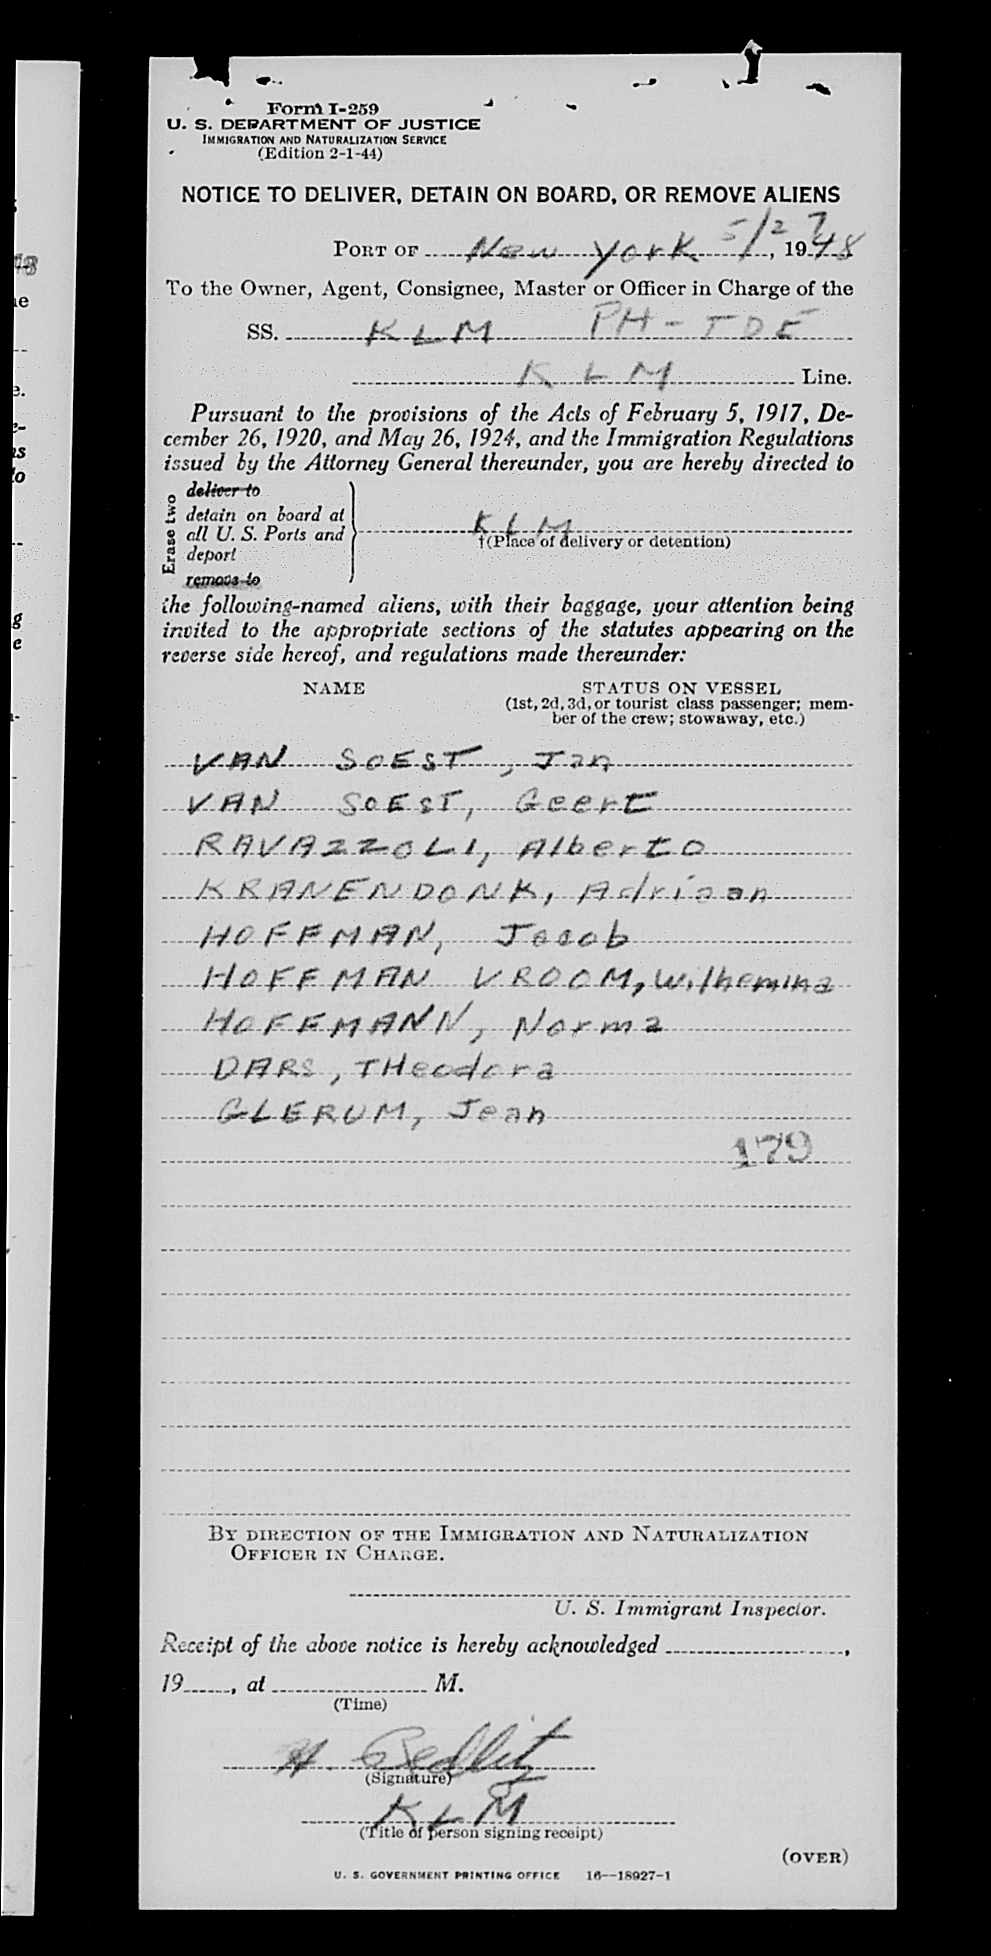 Form I-259
U. S. DEPARTMENT OF JUSTICE
IMMIGRATION AND NATURALIZATION SERVICE
(Edition 2-1-44)
NOTICE TO DELIVER, DETAIN ON BOARD, OR REMOVE ALIENS
PORT OF New York 5/27, 1948
To the Owner, Agent, Consignee, Master or Officer in Charge of the
SS. KLM PH-TDE
KLM Line.
Pursuant to the provisions of the Acts of February 5, 1917, De-
cember 26, 1920, and May 26, 1924, and the Immigration Regulations
issued by the Attorney General thereunder, you are hereby directed to
Erase two
deliver to
detain on board at
all U. S. Ports and
deport
remove to
KLM
†(Place of delivery or detention)
the following-named aliens, with their baggage, your attention being
invited to the appropriate sections of the statutes appearing on the
reverse side hereof, and regulations made thereunder:
NAME STATUS ON VESSEL
(1st, 2d, 3d, or tourist class passenger; mem-
ber of the crew; stowaway, etc.)
VAN SOEST, Jan
VAN SOEST, Geert
RAVAZZOLI, Alberto
KRANENDONK, Adriaan
HOFFMAN, Jacob
HOFFMAN VROOM, Wilhemina
HOFFMANN, Norma
DARS, THeodora
GLERUM, Jean
179
BY DIRECTION OF THE IMMIGRATION AND NATURALIZATION
OFFICER IN CHARGE.
U. S. Immigrant Inspector.
Receipt of the above notice is hereby acknowledged ,
19 , at M.
(Time)
H.
(Signature)
KLM
(Title of person signing receipt)
(OVER)
U. S. GOVERNMENT PRINTING OFFICE 16—18927-1